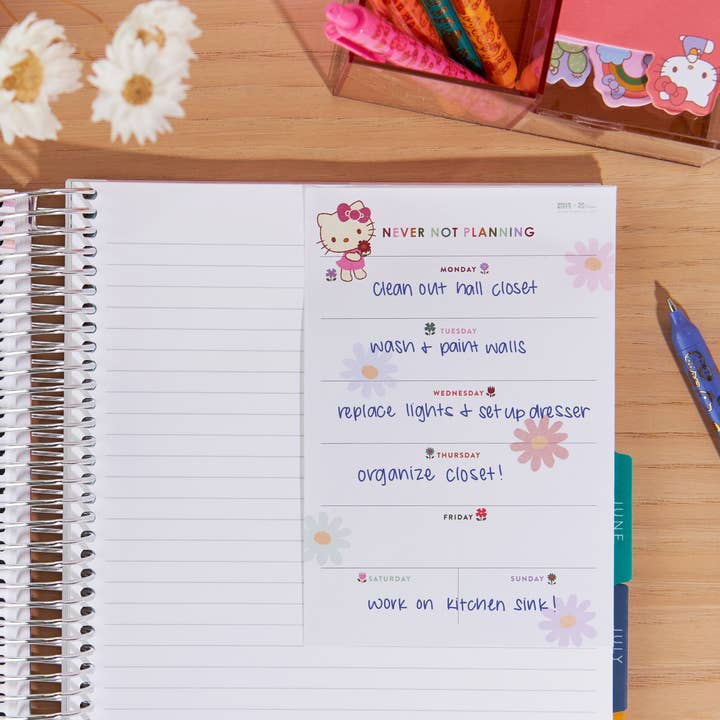 NEVER NOT PLANNING
MONDAY
clean out hall closet
TUESDAY
wash & paint walls
WEDNESDAY
replace lights & set up dresser
THURSDAY
organize closet!
FRIDAY
SATURDAY SUNDAY
work on kitchen sink!
JUNE
JULY